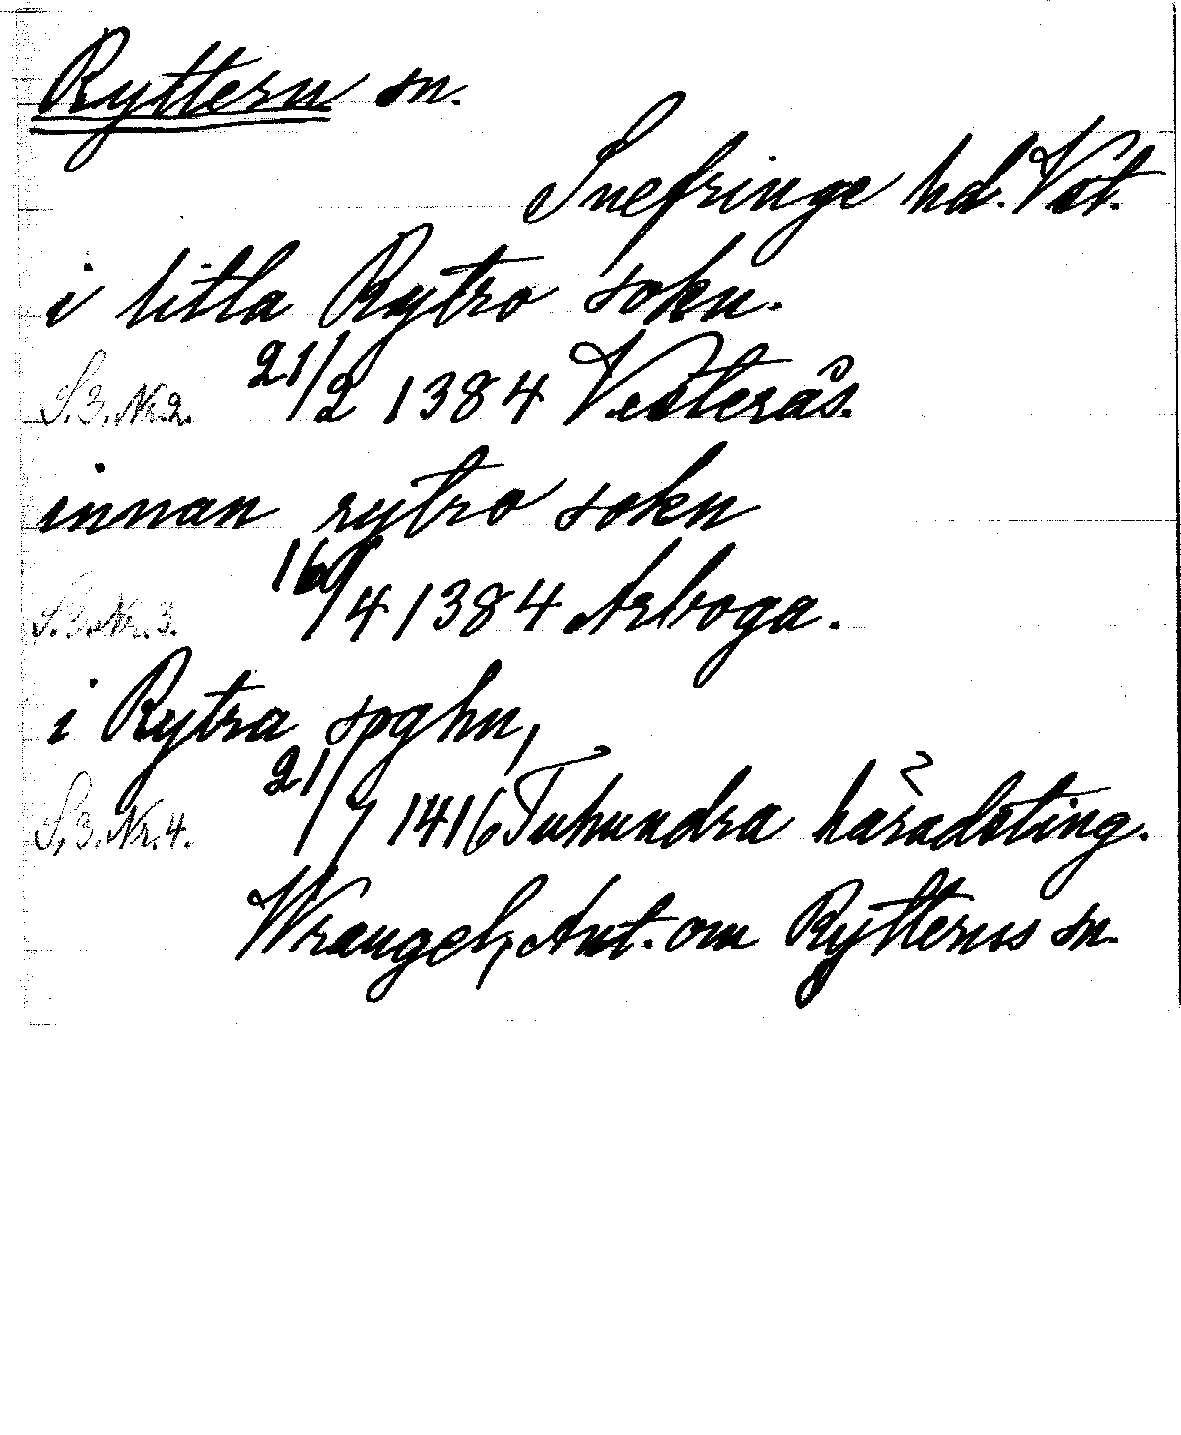 Ryttern sn.
Snefringe hd. Vst.
i litla Rytro sokn.
S. 3. Nr 2. 21/2 1384 Vesterås.
innan rytro sokn
S. 3. Nr. 3. 16/4 1384 Arboga.
i Rytra soghn,
S. 3. Nr. 4. 21/7 1416 Tuhundra häradsting.
Wrangel, Ant. om Rytterns sn.